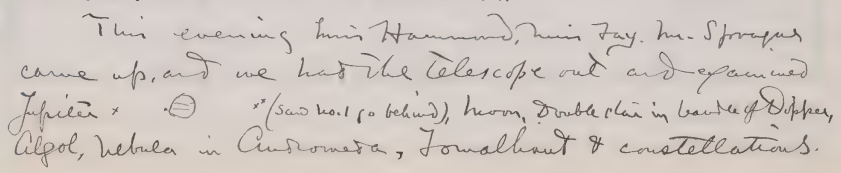 This evening Miss Hammond, Miss Fay, Mr. Sprague
came up, and we had the telescope out and examined
Jupiter (saw No. 1 go behind), Moon, Double star in handle of Dipper,
Algol, Nebula in Andromeda, Fomalhaut & constellations.